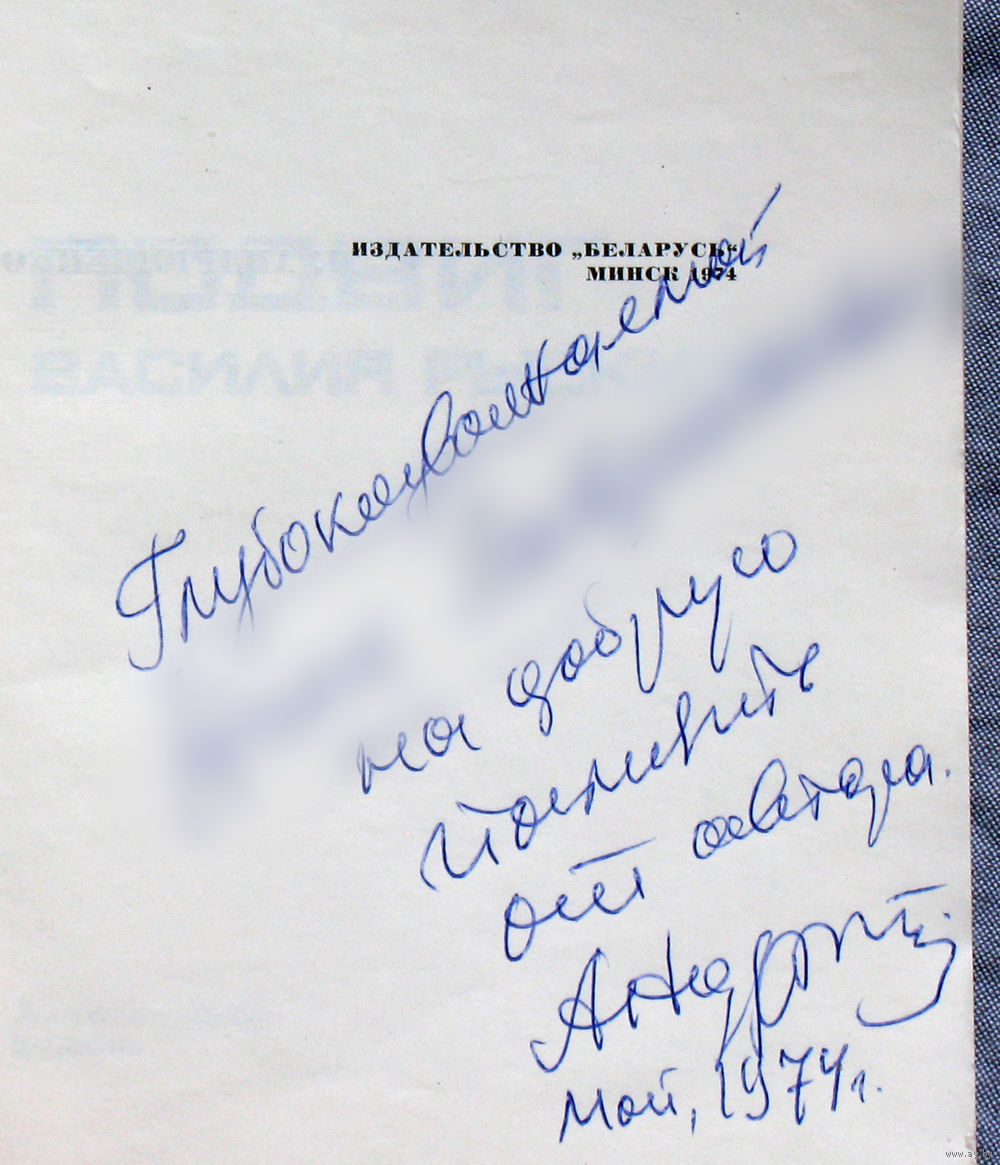 ИЗДАТЕЛЬСТВО „БЕЛАРУСЬ“
МИНСК 1974
Глубокоуважаемой
на добрую
память
от автора.
Май, 1974 г.